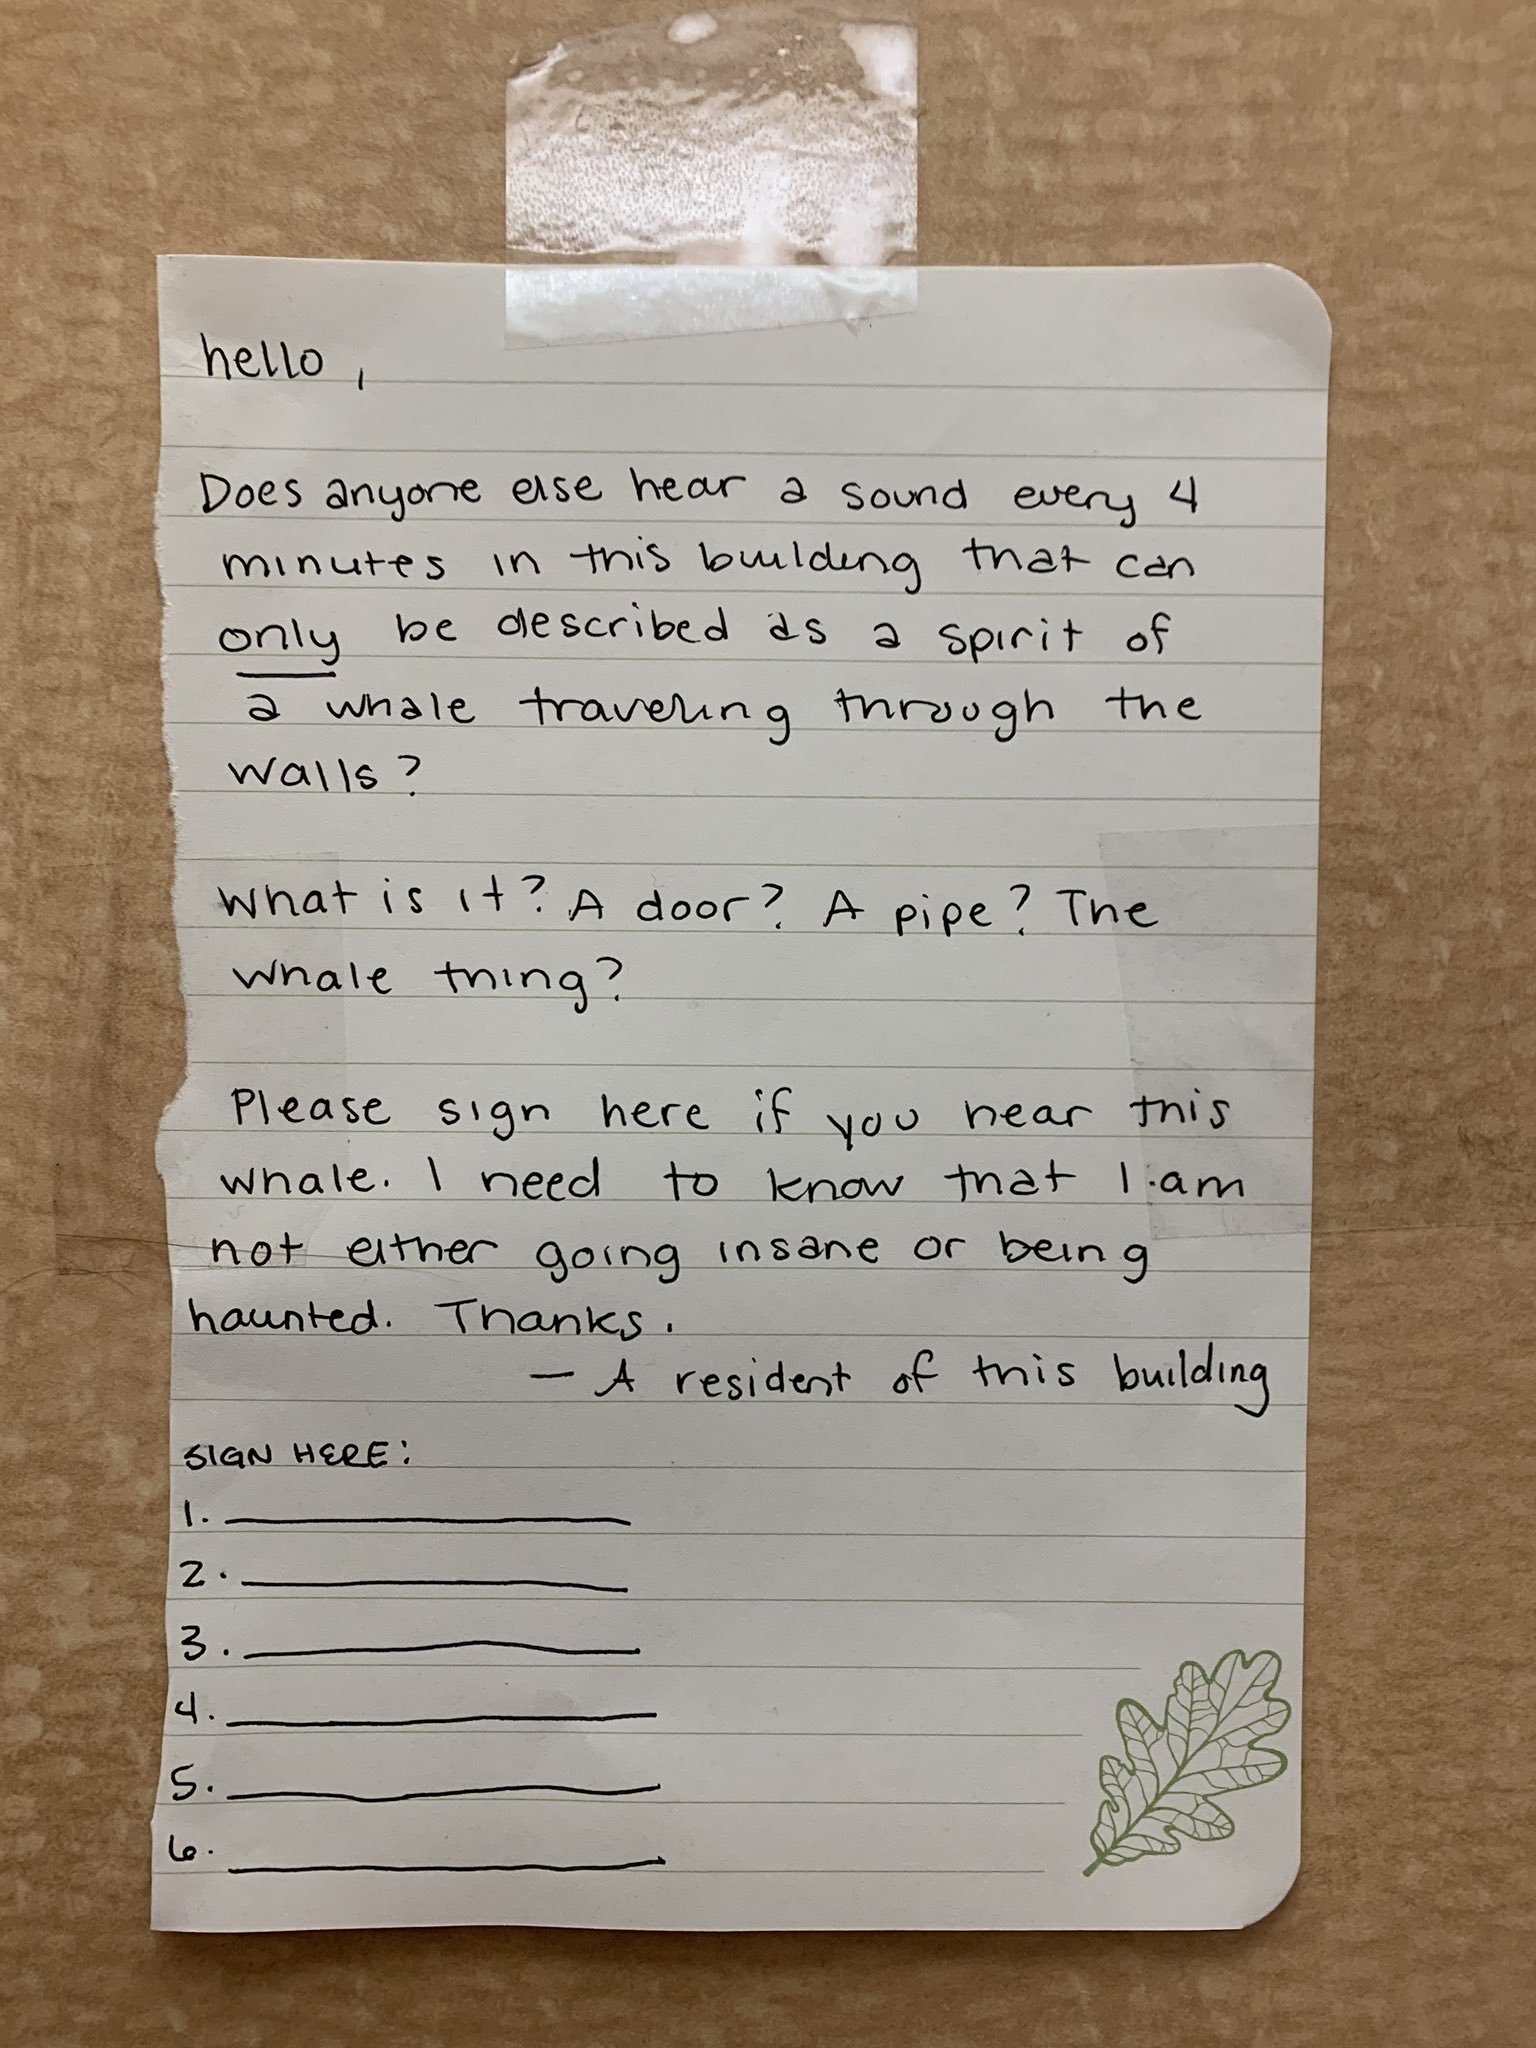 hello,
Does anyone else hear a sound every 4
minutes in this building that can
only be described as a spirit of
a whale traveling through the
walls?
What is it? A door? A pipe? The
whale thing?
Please sign here if you hear this
whale. I need to know that I am
not either going insane or being
haunted. Thanks.
— A resident of this building
SIGN HERE:
1.
2.
3.
4.
5.
6.